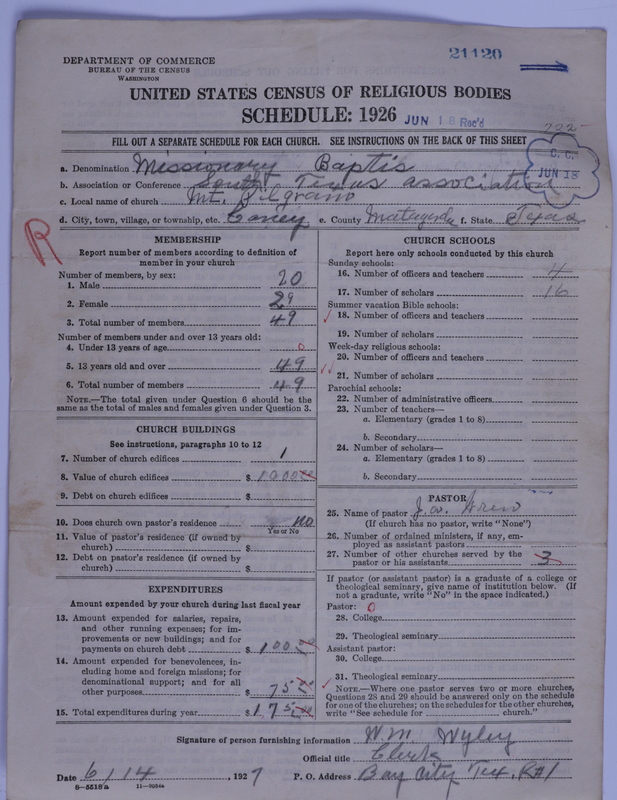 21120
DEPARTMENT OF COMMERCE
BUREAU OF THE CENSUS
WASHINGTON
UNITED STATES CENSUS OF RELIGIOUS BODIES
SCHEDULE: 1926 JUN 18 Rec'd
222
FILL OUT A SEPARATE SCHEDULE FOR EACH CHURCH. SEE INSTRUCTIONS ON THE BACK OF THIS SHEET
C. C.
JUN 18
a. Denomination Missionary Baptis
b. Association or Conference South Texas association
c. Local name of church Mt. Pilgrano
d. City, town, village, or township, etc. Caney e. County Matagorda f. State Texas
R
MEMBERSHIP
Report number of members according to definition of
member in your church
Number of members, by sex:
1. Male 20
2. Female 29
3. Total number of members 49
Number of members under and over 13 years old:
4. Under 13 years of age 0
5. 13 years old and over 49
6. Total number of members 49
NOTE.—The total given under Question 6 should be the
same as the total of males and females given under Question 3.
CHURCH BUILDINGS
See instructions, paragraphs 10 to 12
7. Number of church edifices 1
8. Value of church edifices $ 1000 00
9. Debt on church edifices $
10. Does church own pastor's residence no
Yes or No
11. Value of pastor's residence (if owned by
church) $
12. Debt on pastor's residence (if owned by
church) $
EXPENDITURES
Amount expended by your church during last fiscal year
13. Amount expended for salaries, repairs,
and other running expenses; for im-
provements or new buildings; and for
payments on church debt $ 100 00
14. Amount expended for benevolences, in-
cluding home and foreign missions; for
denominational support; and for all
other purposes $ 75 00
15. Total expenditures during year $ 175 00
CHURCH SCHOOLS
Report here only schools conducted by this church
Sunday schools:
16. Number of officers and teachers 4
17. Number of scholars 16
Summer vacation Bible schools:
18. Number of officers and teachers
19. Number of scholars
Week-day religious schools:
20. Number of officers and teachers
21. Number of scholars
Parochial schools:
22. Number of administrative officers
23. Number of teachers—
a. Elementary (grades 1 to 8)
b. Secondary
24. Number of scholars—
a. Elementary (grades 1 to 8)
b. Secondary
PASTOR
25. Name of pastor J. W.
(If church has no pastor, write "None")
26. Number of ordained ministers, if any, em-
ployed as assistant pastors
27. Number of other churches served by the
pastor or his assistants 3
If pastor (or assistant pastor) is a graduate of a college or
theological seminary, give name of institution below. (If
not a graduate, write "No" in the space indicated.)
Pastor: 0
28. College
29. Theological seminary
Assistant pastor:
30. College
31. Theological seminary
NOTE.—Where one pastor serves two or more churches,
Questions 28 and 29 should be answered only on the schedule
for one of the churches; on the schedules for the other churches,
write "See schedule for church."
Signature of person furnishing information W M Wyley
Official title Clerk
Date 6/14, 1927 P. O. Address Bay City Tex. R#1
8-5518a 11-9034a